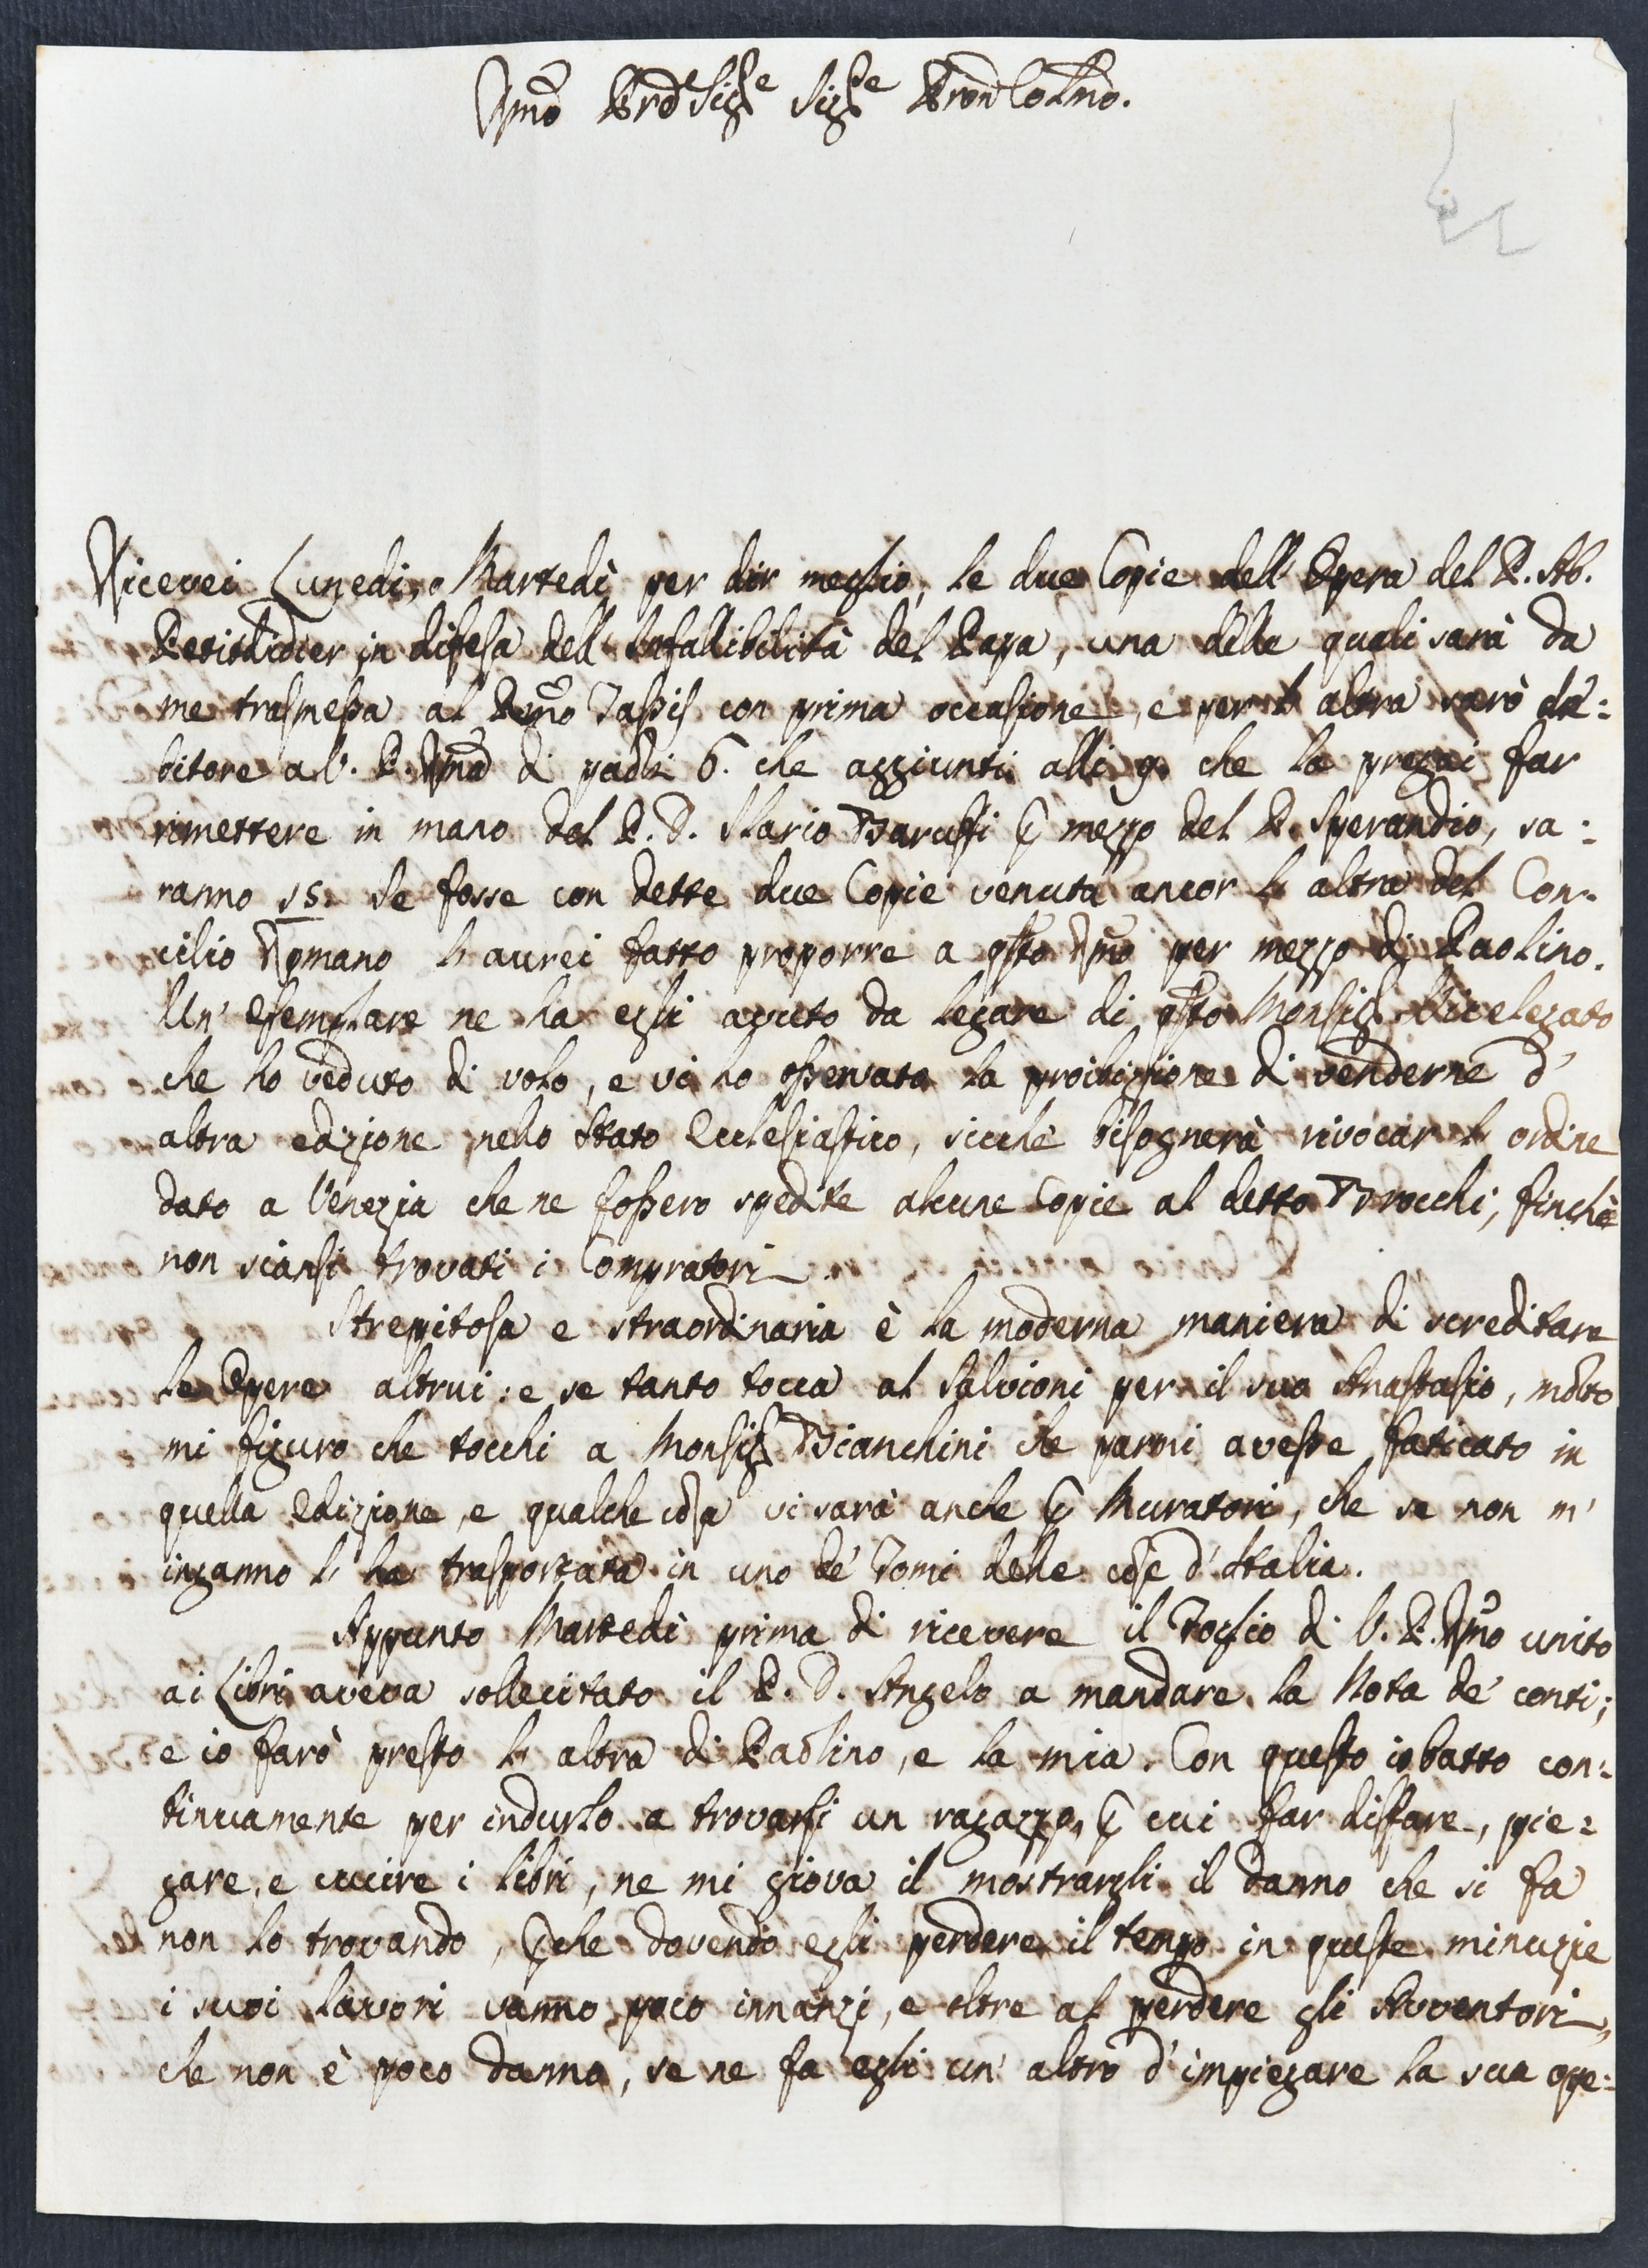 Rmo Prd Sig.e Sig.e Pron Colmo.
Ricevei Lunedi, o Martedì per dir meglio, le due Copie dell' Opera del P. Ab.
Petitdidier in difesa dell' Infallibilità del Papa, una delle quali sarà da
me trasmessa al Rmo Tassis con prima occasione, e per l' altra sarò de:
bitore a V. P. Rma di paoli 6. che aggiunti alli 9. che la pregai far
rimettere in mano del P. D. Ilario Baruffi p mezzo del P. Sperandio, sa:
ranno 15. Se fosse con dette due Copie venuta ancor l' altra del Con:
cilio Romano l' aurei fatto proporre a qsto Rmo per mezzo di Paolino.
Un' Esemplare ne ha egli avuto da legare di qsto Monsig. Vicelegato
che ho veduto di volo, e vi ho osservata la proibizione di venderne d'
altra edizione nello Stato Ecclesiastico, sicchè bisognerà rivocar l' ordine
dato a Venezia che ne fossero spedite alcune Copie al detto Brocchi, finchè
non siansi trovati i Compratori.
Strepitosa e straordinaria è la moderna maniera di screditare
le Opere altrui: e se tanto tocca al Salvioni per il suo Anastasio, molto
mi figuro che tocchi a Monsig. Bianchini che parmi avesse faticato in
quella Edizione, e qualche cosa vi sarà anche p Muratori, che se non m'
inganno l' ha trasportata in uno de' Tomi delle cose d'Italia.
Appunto Martedì prima di ricevere il Foglio di V. P. Rma unito
ai Libri aveva sollecitato il P. D. Angelo a mandare la Nota de' conti;
e io farò presto l' altra di Paolino, e la mia. Con questo io batto con:
tinuamente per indurlo a trovarsi un ragazzo, p cui far disfare, pie:
gare, e cucire i libri, ne mi giova il mostrargli il danno che si fa
non lo trovando, pche dovendo egli perdere il tempo in queste minuzie
i suoi lavori vanno poco innanzi, e oltre al perdere gli Avventori,
che non è poco danno, se ne fa egli un' altro d'impiegare la sua ope: